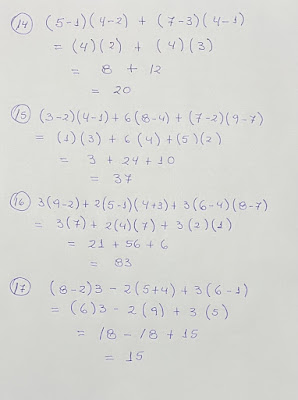 14 (5-1)(4-2) + (7-3)(4-1)
= (4)(2) + (4)(3)
= 8 + 12
= 20
15 (3-2)(4-1)+6(8-4)+(7-2)(9-7)
= (1)(3)+6(4)+(5)(2)
= 3 + 24 + 10
= 37
16 3(9-2)+2(5-1)(4+3)+3(6-4)(8-7)
= 3(7)+2(4)(7)+3(2)(1)
= 21 + 56 + 6
= 83
17 (8-2)3 - 2(5+4) + 3(6-1)
= (6)3 - 2(9) + 3(5)
= 18 - 18 + 15
= 15